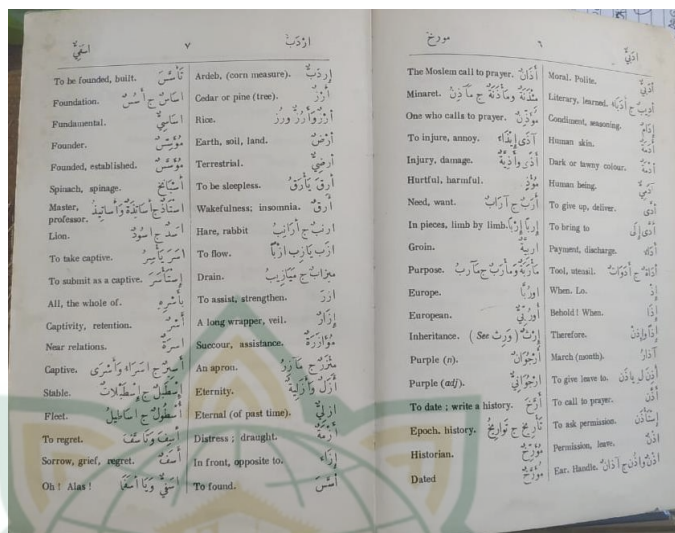 اسفي
٧
اردب
To be founded, built. تَأَسَّسَ
Foundation. اساس ج أُسُس
Fundamental. اساسي
Founder. مُؤَسِّس
Founded, established. مُؤَسَّس
Spinach, spinage.
Master, professor. استاذ ج أساتذة وأساتيذ
Lion. اسد ج اسود
To take captive. اسر يأسر
To submit as a captive. إستأسر
All, the whole of. بأسره
Captivity, retention. أَسْر
Near relations. اسرة
Captive. أسير ج اسراء وأسرى
Stable. اسطبل ج اسطبلات
Fleet. أسطول ج اساطيل
To regret. أسف وتأسف
Sorrow, grief, regret. أَسَف
Oh! Alas!
Ardeb, (corn measure). إردب
Cedar or pine (tree). أرز
Rice.
Earth, soil, land. أرض
Terrestrial. أرضي
To be sleepless. أرق يأرق
Wakefulness; insomnia. أرق
Hare, rabbit ارنب ج أرانب
To flow.
Drain.
To assist, strengthen. ازر
A long wrapper, veil. إزار
Succour, assistance. مؤازرة
An apron. مئزر ج مآزر
Eternity. أزل وأزلية
Eternal (of past time). ازلي
Distress; draught. أزمة
In front, opposite to. إزاء
To found. أسس
مورخ
٦
ادبي
The Moslem call to prayer. أذان
Minaret. مئذنة ومأذنة ج مآذن
One who calls to prayer. مؤذن
To injure, annoy. آذى إيذاء
Injury, damage. أذى وأذية
Hurtful, harmful. مؤذ
Need, want. أرب ج آراب
In pieces, limb by limb. إربا إربا
Groin. أربية
Purpose.
Europe. أوربا
European. أوربي
Inheritance. (See ورث) إرث
Purple (n). ارجوان
Purple (adj). ارجواني
To date; write a history. أرخ
Epoch. history. تاريخ ج تواريخ
Historian. مؤرخ
Dated مؤرخ
Moral. Polite. أدبي
Literary, learned. أديب ج أدباء
Condiment, seasoning. إدام
Human skin. أدمة
Dark or tawny colour. أدمة
Human being. آدمي
To give up, deliver. أدى
To bring to أدى إلى
Payment, discharge. أداء
Tool, utensil. أداة ج أدوات
When. Lo. إذ
Behold! When. إذا
Therefore. إذا وإذن
March (month). آذار
To give leave to. أذن ل يأذن
To call to prayer. أذن
To ask permission. إستأذن
Permission, leave. إذن
Ear. Handle. أذن وأذن ج آذان